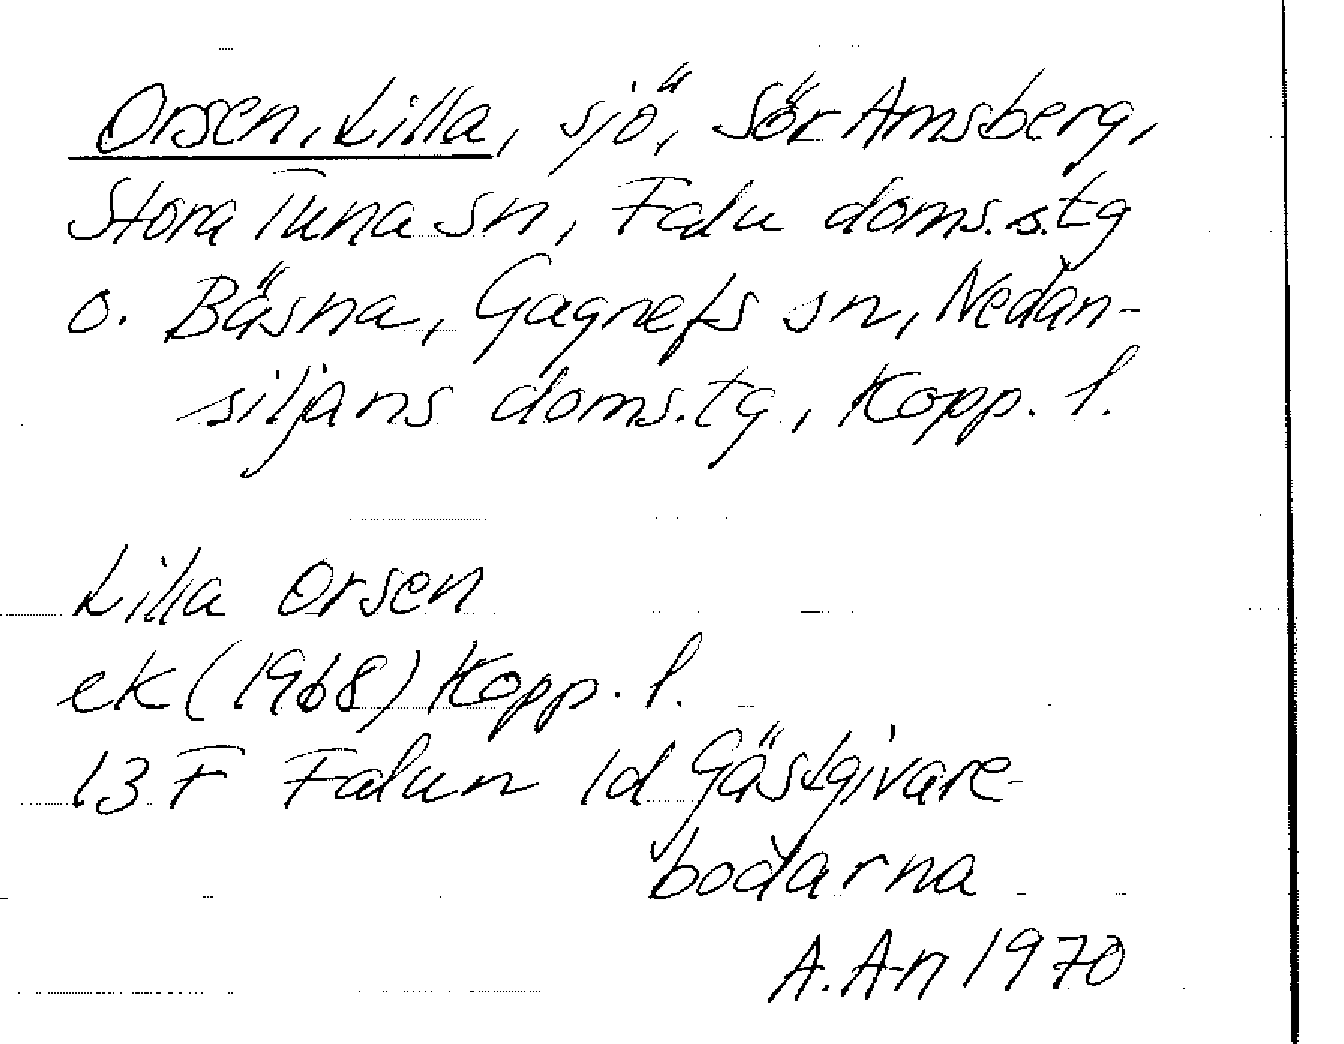 Orsen, Lilla, sjö, Sör Amsberg,
Stora Tuna sn, Falu doms.s.tg
o. Bäsna, Gagnefs sn, Nedan-
siljans doms.tg, Kopp. l.
Lilla Orsen
ek (1968) Kopp. l.
13 F Falun 1d Gästgivare-
bodarna
A. A-n 1970